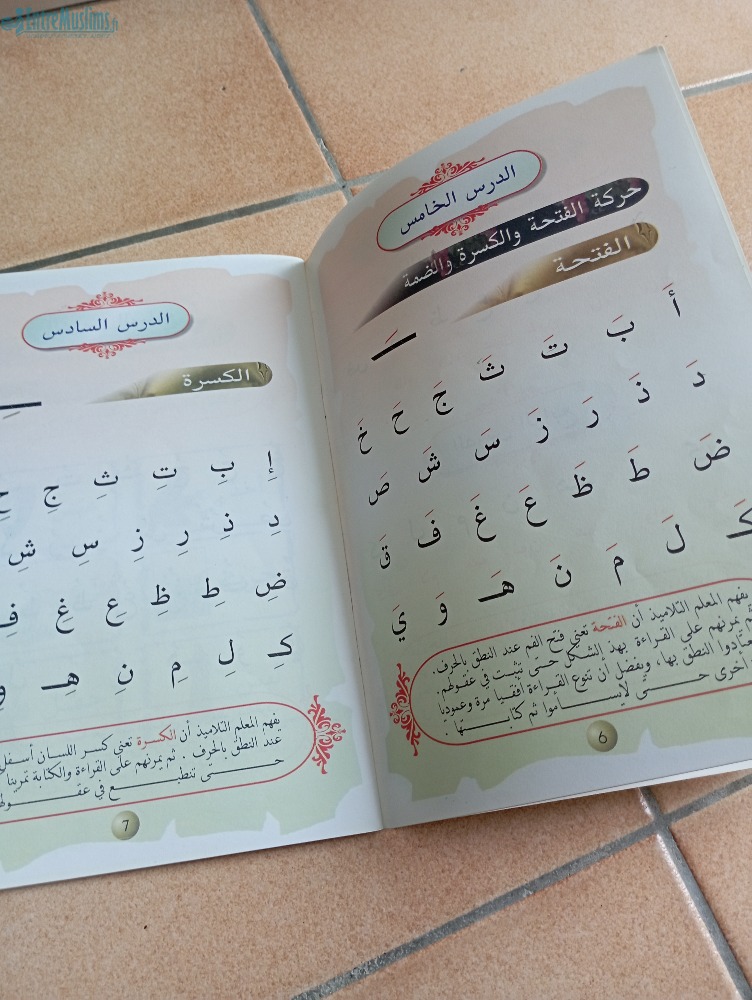 EntreMuslims.fr
الدرس الخامس
حركة الفتحة والكسرة والضمة
الفتحة
أَ بَ تَ ثَ جَ حَ خَ
دَ ذَ رَ زَ سَ شَ صَ
ضَ طَ ظَ عَ غَ فَ قَ
كَـ لَ مَ نَ هَـ وَ يَ
يفهم المعلم التلاميذ أن الفتحة تعني فتح الفم عند النطق بالحرف.
ثم يمرنهم على القراءة بهذا الشكل حتى تثبت في عقولهم.
النطق بها، ويفضل أن تنوع القراءة أفقيا مرة وعموديا
أخرى حتى لايسأموا ثم كتابتها.
6
الدرس السادس
الكسرة
إِ بِ تِ ثِ جِ حِ
دِ ذِ رِ زِ سِ شِ
ضِ طِ ظِ عِ غِ فِ
كِـ لِ مِ نِ هِـ وِ
يفهم المعلم التلاميذ أن الكسرة تعني كسر اللسان أسفل
عند النطق بالحرف. ثم يمرنهم على القراءة والكتابة تمرينا
حتى تنطبع في عقولهم
7